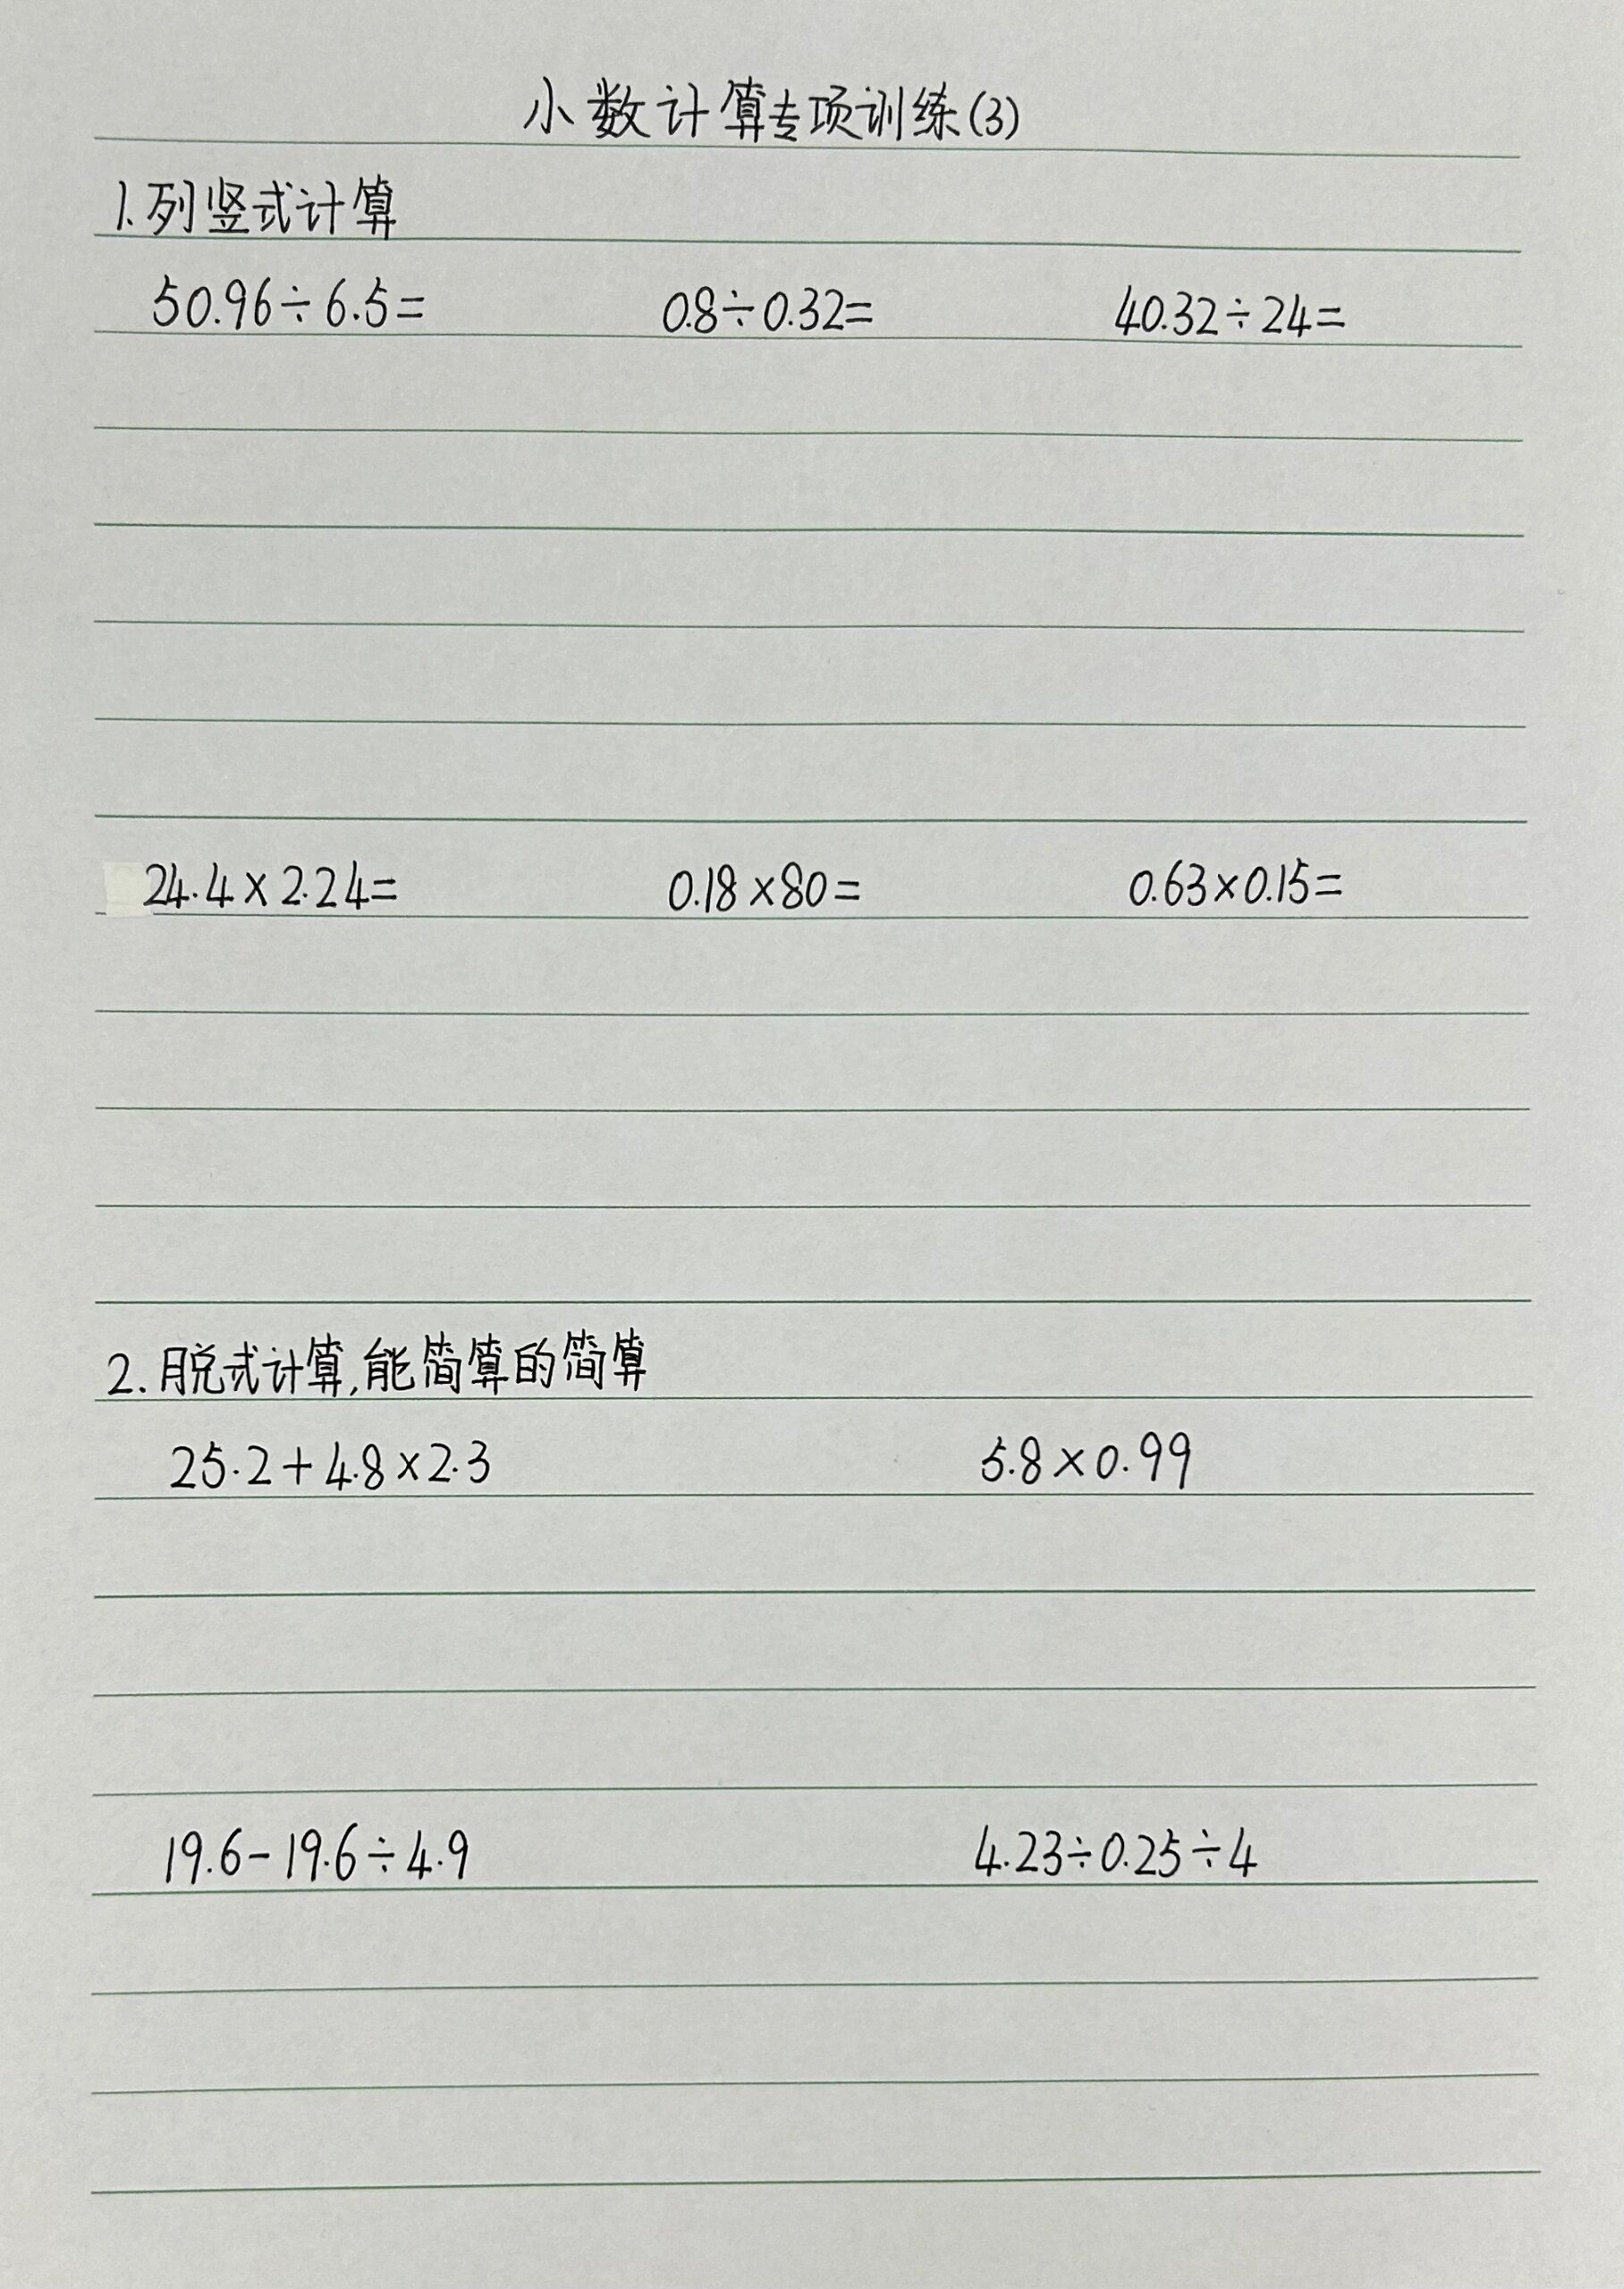 小数计算专项训练(3)
1.列竖式计算
50.96÷6.5= 0.8÷0.32= 40.32÷24=
24.4×2.24= 0.18×80= 0.63×0.15=
2.脱式计算,能简算的简算
25.2+4.8×2.3 5.8×0.99
19.6-19.6÷4.9 4.23÷0.25÷4